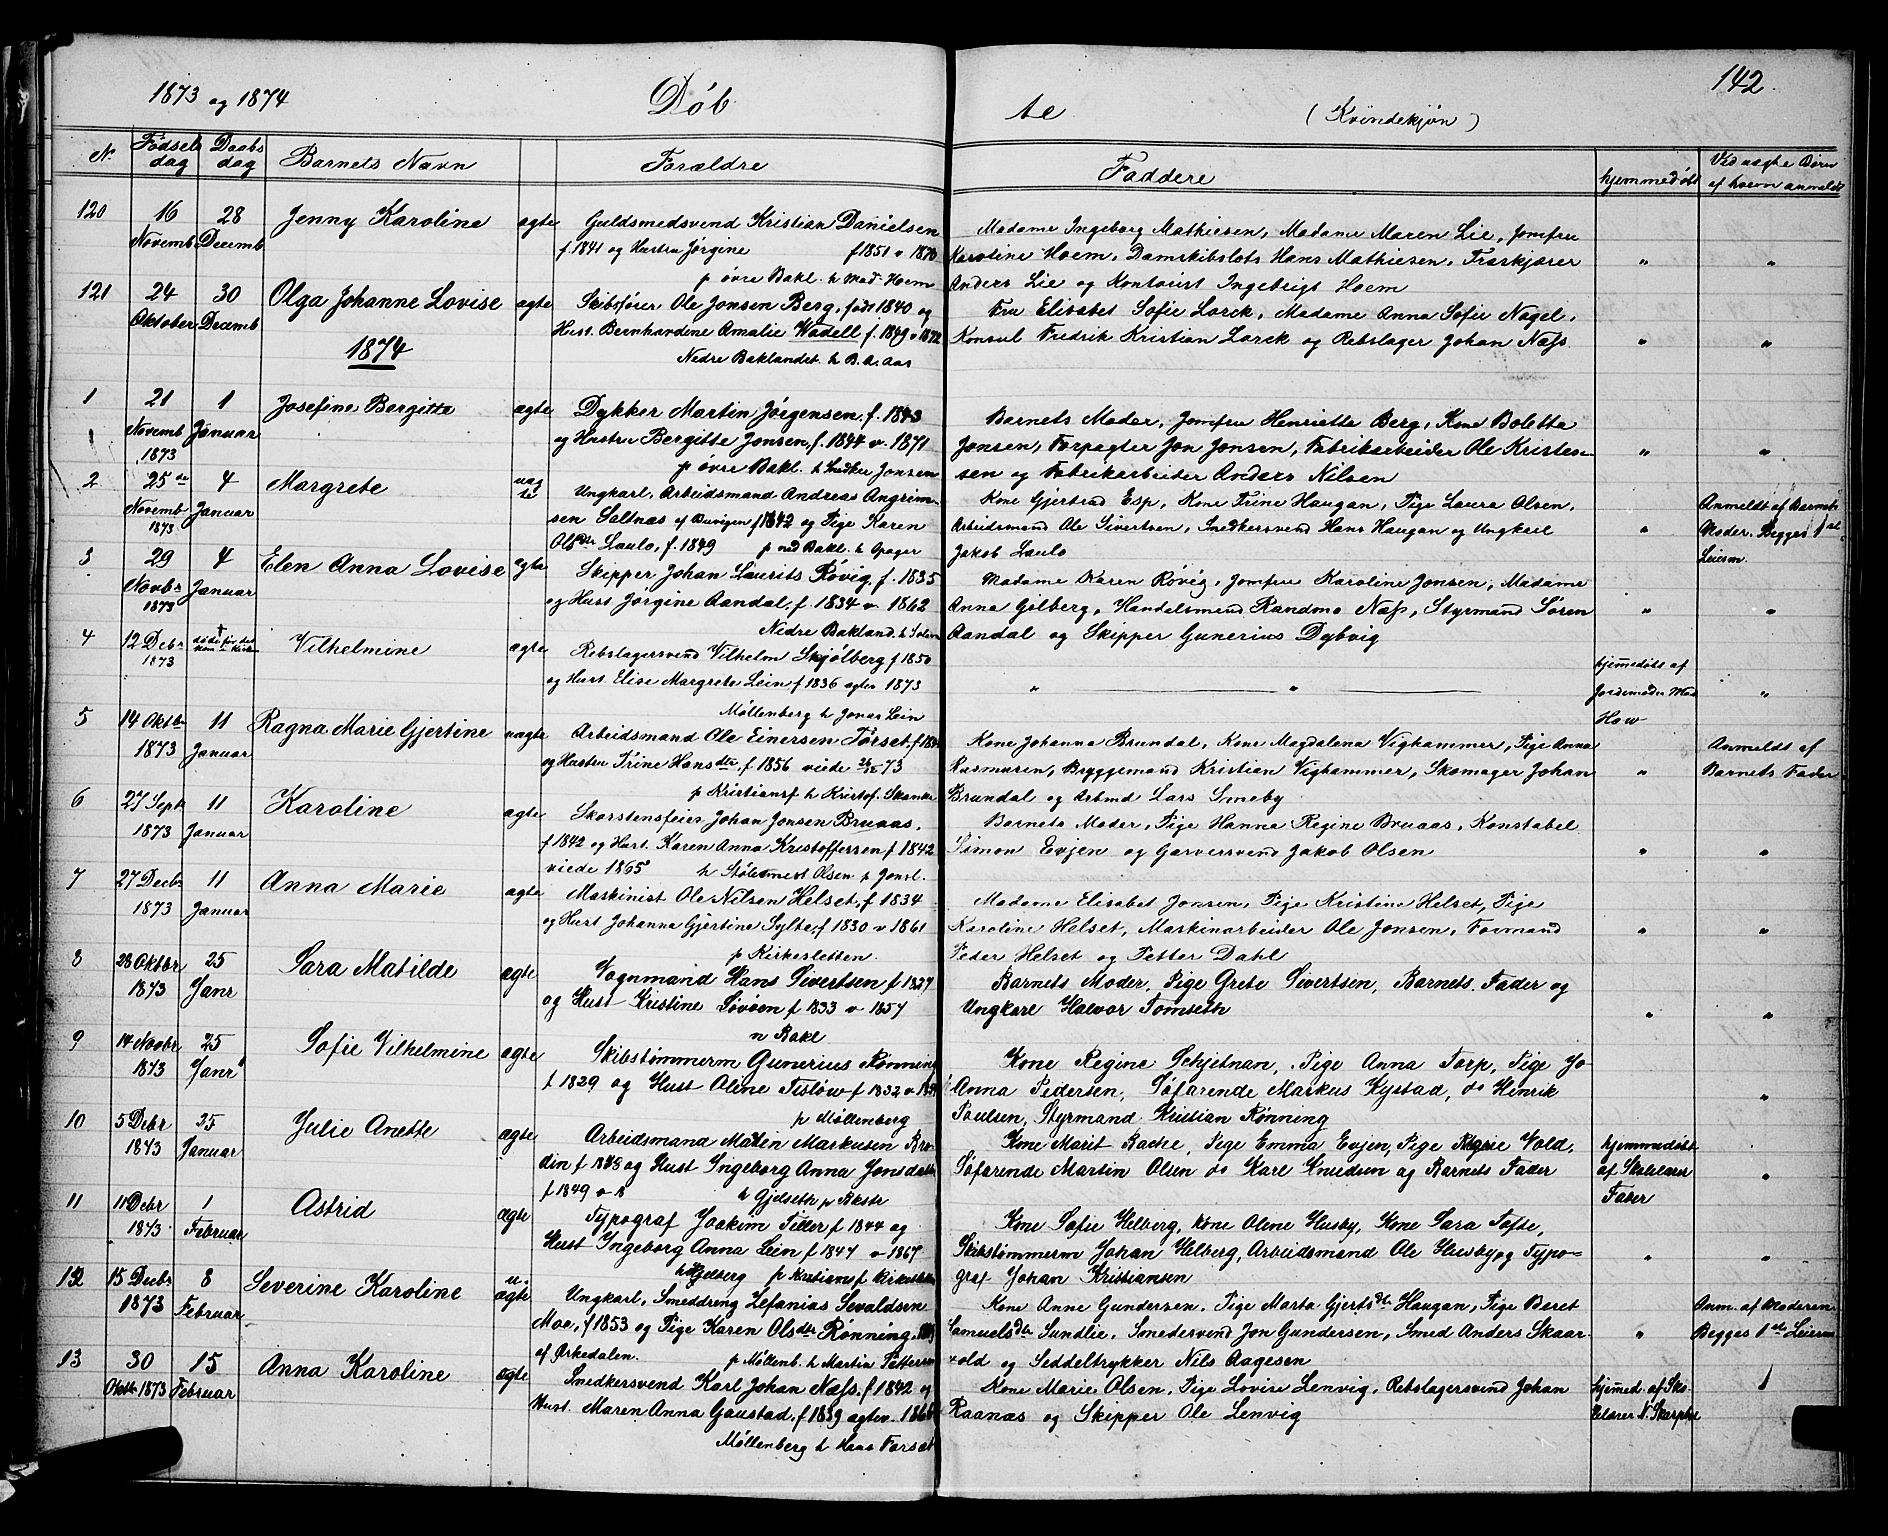 1873 og 1874 Døb
te (Kvindekjøn) 142.
N. Fødsels dag Daabs dag Barnets Navn Forældre
Faddere hjemmedøbt Ved uægte Børn af hvem anmeldt
120 16 Novemb 28 Decemb Jenny Karoline ægte Guldsmedsvend Kristian Danielsen
f. 1841 og Hustru Jørgine f 1851 v 1870
p øvre Bakl. h Mad. Hoem
Madame Ingeborg Mathiesen, Madame Maren Lie, Jomfru
Karoline Hoem, Damskibslots Hans Mathiesen, Træskjærer
Anders Lie og Kontorist Ingebrigt Hoem
" "
121 24 Oktober 30 Decemb Olga Johanne Lovise ægte Skibsfører Ole Jonsen Berg, født 1840 og
Hust. Bernhardine Amalie Wadell f. 1849 v 1872
Nedre Baklandet h B. A. Aas
Fru Elisabet Sofie Lorck, Madame Anna Sofie Nagel,
Konsul Fredrik Kristian Lorck og Rebslager Johan Næss
" "
1874
1 21 Novemb 1873 1 Januar Josefine Bergitte ægte Dykker Martin Jørgensen, f. 1843
og Hustru Bergitte Jonsen, f. 1844 v. 1871
p øvre Bakl. h Snedker Jonsen
Barnets Moder, Jomfru Henriette Berg, Kone Boletta
Jonsen, Forpagter Jon Jonsen, Fabrikarbeider Ole Kristen-
sen og Fabrikarbeider Anders Nilsen
" "
2 25de Novemb 1873 4 Januar Margrete uægte Ungkarl, Arbeidsmand Andreas Angrim-
sen Saltnæs af Buvigen f 1842 og Pige Karen
Olsdtr Laulo, f. 1849 p ned Bakl. h Opager
Kone Gjertrud Esp, Kone Trine Haugan, Pige Laura Olsen,
Arbeidsmand Ole Sivertsen, Snedkersvend Hans Haugan og Ungkarl
Jakob Laulo
" Anmeldt af Barnets
Moder, Begges 1ste
Leierm.
3 29 Novbr 1873 4 Januar Elen Anna Lovise ægte Skipper Johan Laurits Røvig, f. 1835
og Hust Jørgine Aandal, f. 1834 v. 1862
Nedre Bakland. h
Madame Karen Røvig, Jomfru Karoline Jonsen, Madame
Anna Gølberg, Handelsmand Randmo Næss, Styrmand Søren
Aandal og Skipper Gunerius Dybvig
" "
4 12 Debr 1873 † døde før det kom til Kirke Vilhelmine ægte Rebslagersvend Vilhelm Skjølberg f 1850
og Hust Elise Margrete Lein f 1836 agter 1873
Møllenberg h Jonas Lein
" " hjemmedøbt af
Jordemoder Mad
How "
5 14 Oktbr 1873 11 Januar Ragna Marie Gjertine uægte Arbeidsmand Ole Einersen Tørset,
og Hustru Trine Hansdtr, f 1856 viede 73
p Kristiansf h Kristof. Skanke
Kone Johanna Brundal, Kone Magdalena Vighammer, Pige Anna
Rasmusen, Bryggemand Kristian Vighammer, Skomager Johan
Brundal og Arbmd Lars Smeby
" Anmeldt af
Barnets Fader
6 27 Sept 1873 11 Januar Karoline ægte Skorstensfeier Johan Jonsen Bruaas,
f 1842 og Hust. Karen Anna Kristoffersen f 1842
viede 1865 h Støbemest Olsen p Jonsl.
Barnets Moder, Pige Hanna Regine Bruaas, Konstabel
Simon Evjen og Garversvend Jakob Olsen
" "
7 27 Decbr 1873 11 Januar Anna Marie ægte Maskinist Ole Nilsen Helset, f 1834
og Hust Johanna Gjertine Sylte, f 1830 v 1861
p Kirkesletten.
Madame Elisabet Jonsen, Pige Kristine Helset, Pige
Karoline Helset, Maskinarbeider Ole Jonsen, Formand
Peder Helset og Petter Dahl
" "
8 28 Oktbr 1873 25 Janr Sara Matilde ægte Vognmand Hans Sivertsen f 1827
og Hust Kristine f 1833 v 1857
n Bakl
Barnets Moder, Pige Grete Sivertsen, Barnets Fader og
Ungkarl Halvor Tomseth
" "
9 14 Novbr 1873 25 Janr Sofie Vilhelmine ægte Skibstømmerm Gunerius Rønning
f 1829 og Hust Oline Tesløw f 1832
p Møllenberg
Kone Regine Schjetnan, Pige Anna Torp, Pige Jo-
Anna Pedersen, Søfarende Markus Kystad, do Henrik
Paulsen, Styrmand Kristian Rønning
"
10 5 Debr 1873 25 Januar Julie Anette ægte Arbeidsmand Martin Markusen Bro-
din f 1848 og Hust Ingeborg Anna Jonsdatter
f 1849 h Gjelseth p Bkstr
Kone Marit Backe, Pige Emma Evjen, Pige Regine Vold,
Søfarende Martin Olsen do Karl Knudsen og Barnets Fader
hjemmedøbt
af Skolelærer
Faber "
11 11 Debr 1873 1 Februar Astrid ægte Typograf Joakim Tiller f 1844 og
Hust Ingeborg Anna Lein f 1847 v 1867
h Hjelberg p Kristiansf Kirkesletten
Kone Sofie Helberg, Kone Oline Husby, Kone Sara Tofte,
Skibstømmerm Johan Helberg, Arbeidsmand Ole Husby og Typo-
graf Johan Kristiansen
" "
12 15 Decbr 1873 8 Februar Severine Karoline u. ægte Ungkarl, Smeddreng Zefanias Sevaldsen
Moe, f 1853 og Pige Karen Olsdtr Rønning,
af Ørkedalen. p Møllenb. h Martin Pettersen
Kone Anne Gundersen, Pige Marta Gjertsdtr Haugan, Pige Beret
Samuelsdtr Sundlie, Smedesvend Jon Gundersen, Smed Anders Skaar-
vold og Seddeltrykker Nils Aagesen
" Anm. af Moderen
Begges 1ste Leierm
13 30 Oktbr 1873 15 Februar Anna Karoline ægte Snedkersvend Karl Johan Næss, f 1842 og
Hust. Maren Anna Gaustad, f 1839 agter
Møllenberg h Hans Forset
Kone Marie Olsen, Pige Lovise Lenvig, Rebslagersvend Johan
Raanæs og Skipper Ole Lenvig
hjemmed. af Sko-
lelærer N. "